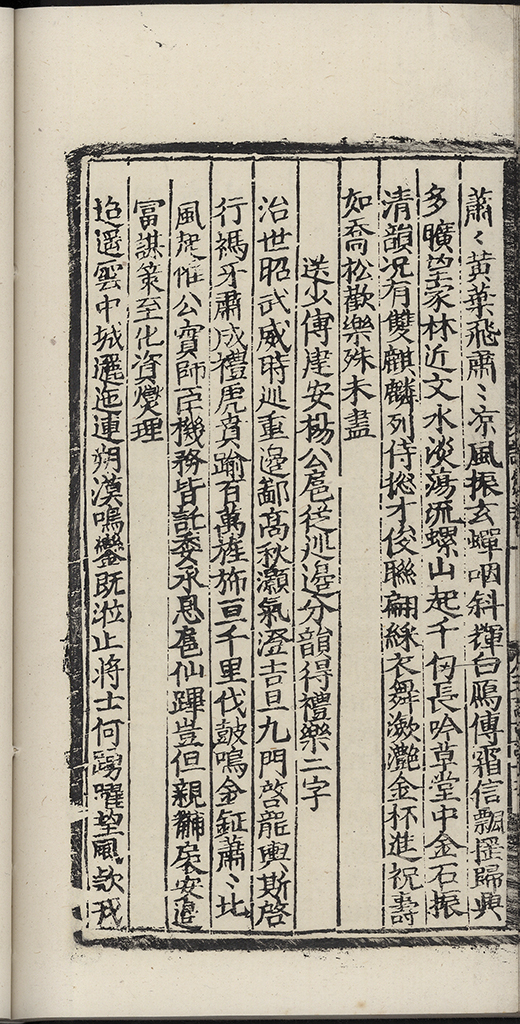 蕭〻黃葉飛肅〻凉風振玄蟬咽斜暉白鴈傳霜信飄颻歸興
多曠望家林近文水淡蕩流螺山起千仞長吟草堂中金石振
清韻况有雙麒麟列侍揔才俊聯翩綵衣舞瀲灧金杯進祝壽
如喬松歡樂殊未盡
送少傅建安楊公扈從巡邊分韻得禮樂二字
治世昭武威時巡重邊鄙髙秋灝氣澄吉旦九門啓龍輿斯啓
行禡牙肅成禮虎賁踰百萬旌旆亘千里伐皷鳴金鉦蕭〻北
風起惟公實師臣機務皆託委承恩扈仙蹕豈但親黼扆安邊
冨謀策至化資爕理
迢遥雲中城邐迤連朔漠鳴鑾既涖止將士何踴躍望風欵我